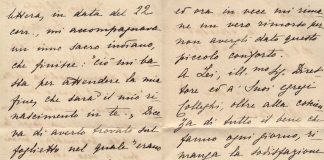 lettera, in data del 22
corr., mi accompagnava
un inno sacro indiano,
che finisce: "Ciò mi ba-
sta per attendere la mia
fine, che sarà il mio ri-
nascimento in te". Dice-
va di averlo trovato sul
foglietto nel quale erano
ed ora in vece mi rima-
ne un vero rimorso per
non avergli dato questo
piccolo conforto.
A Lei, ill. mo Sig. Diret-
tore ed a' Suoi egregi
Colleghi, oltre alla
di tutto il bene che
fanno ogni giorno, ri-
manga la sodisfazione